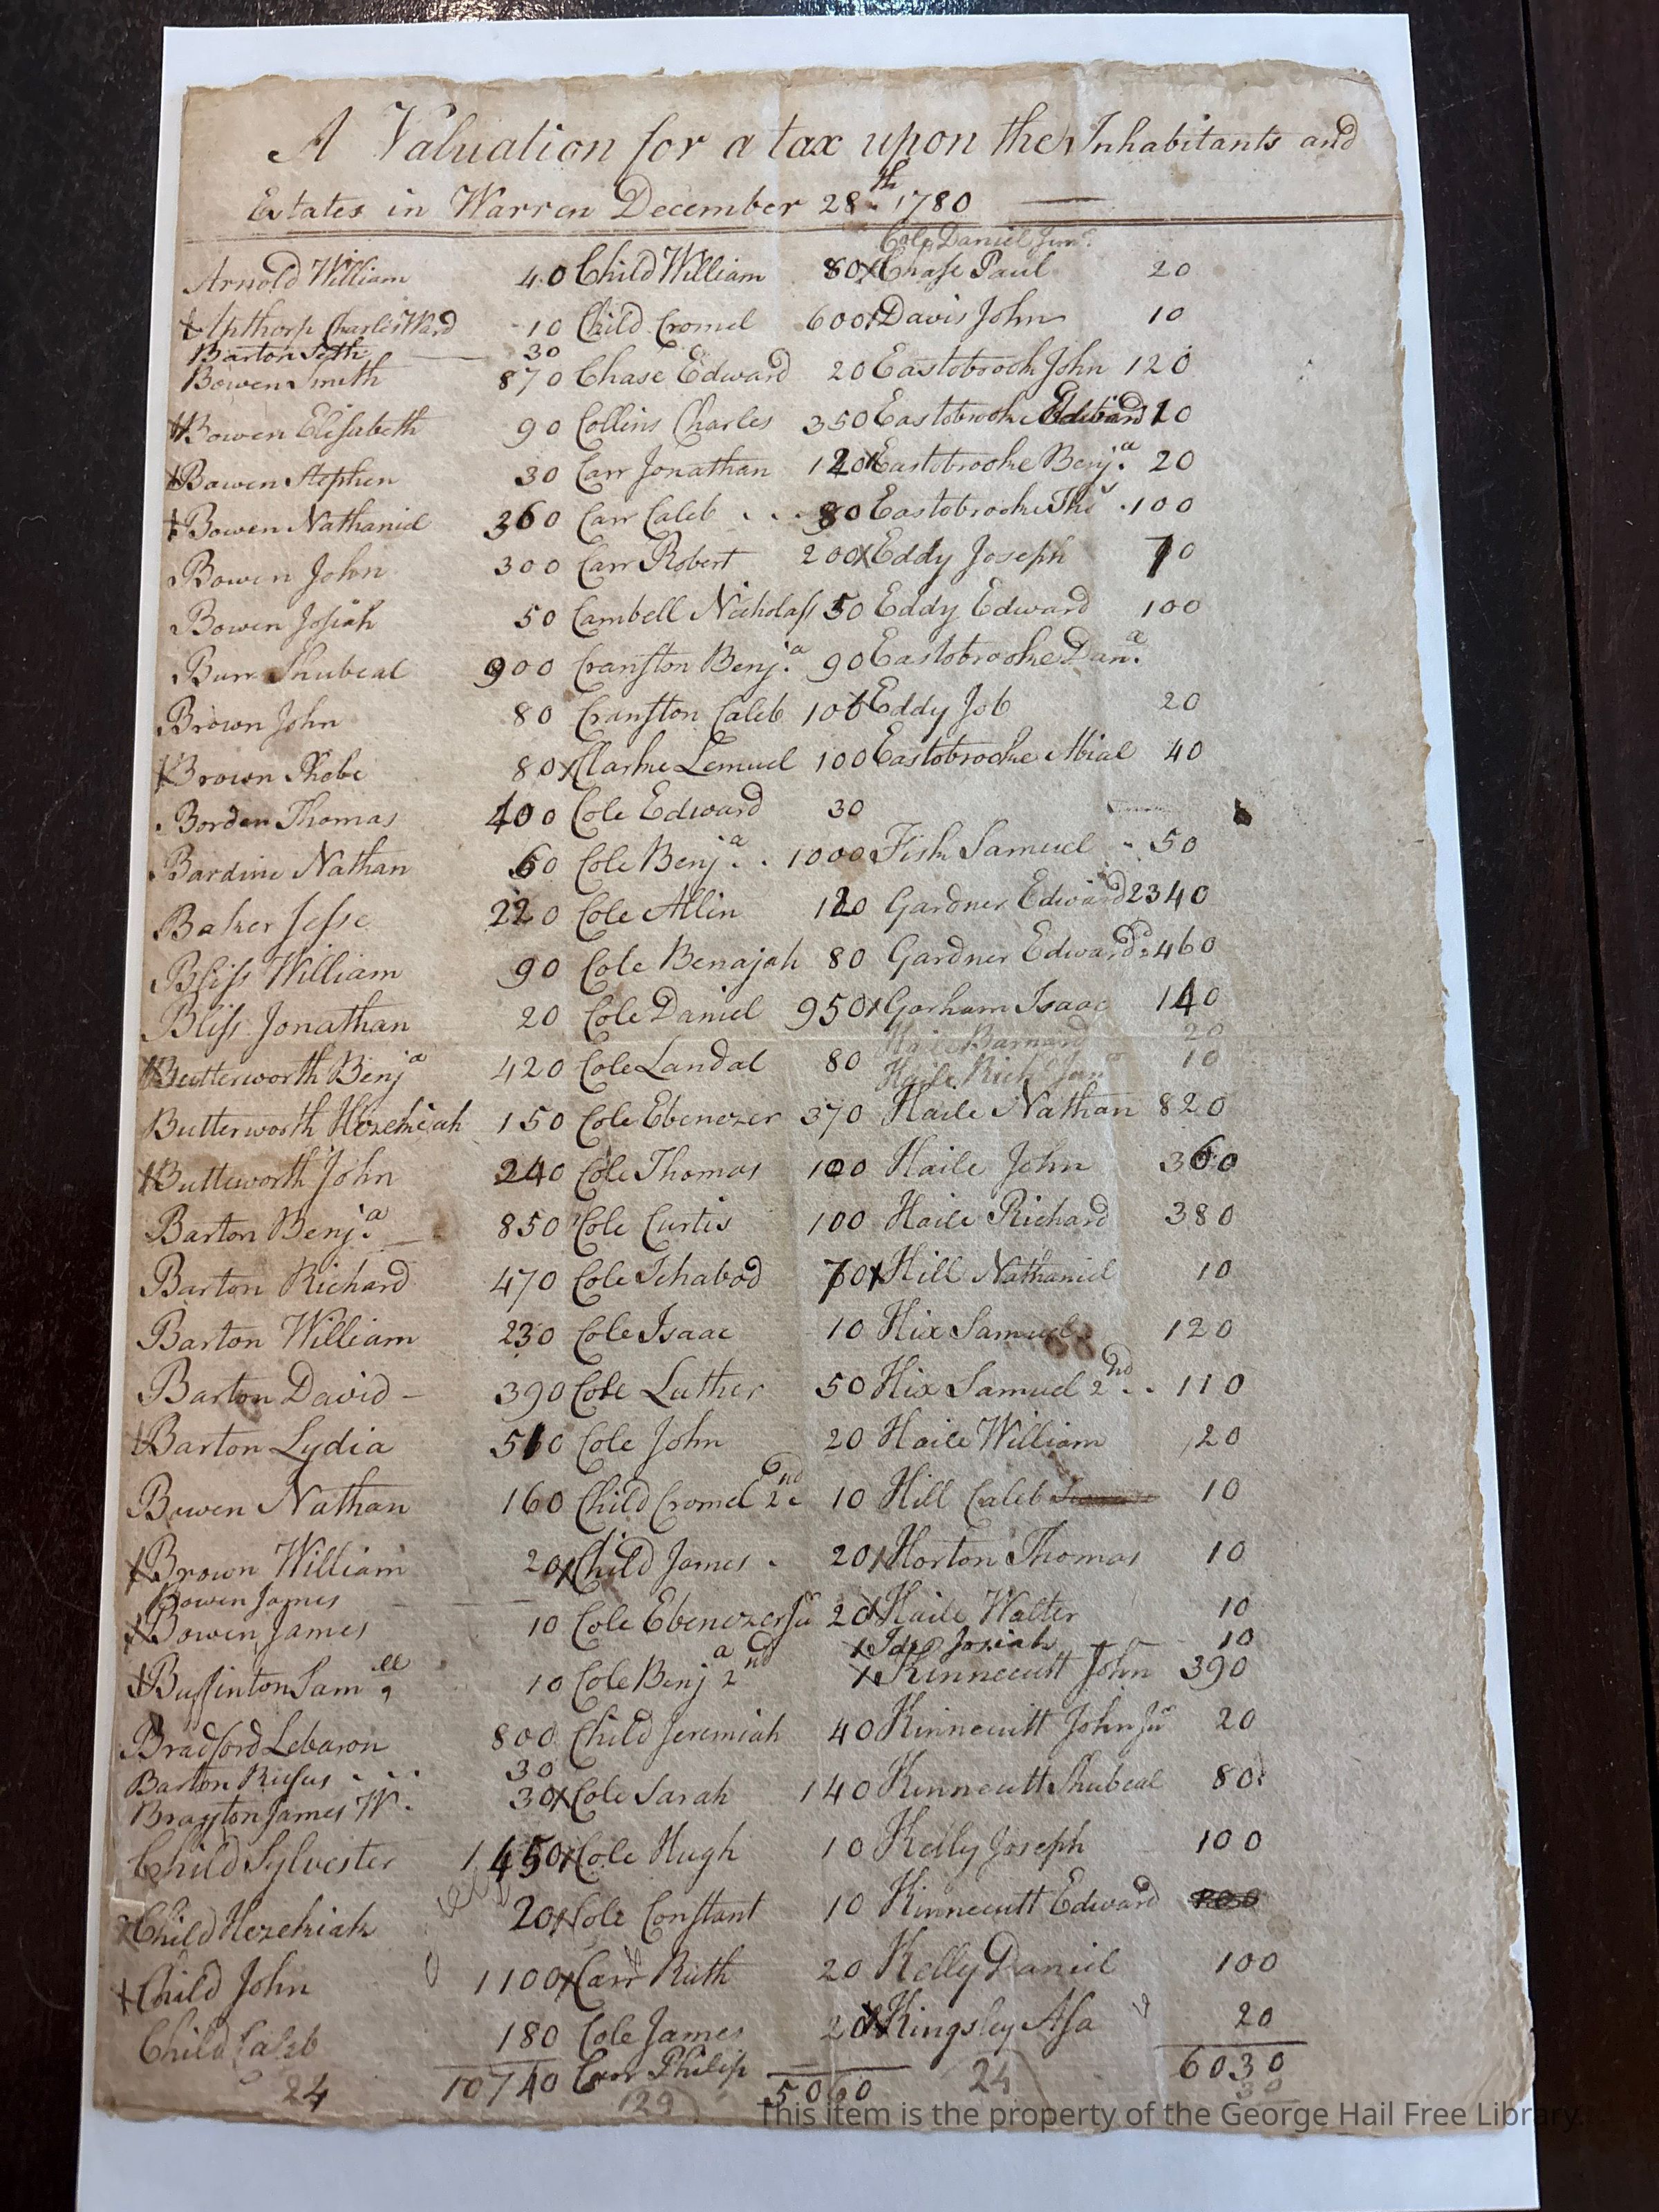 A Valuation for a tax upon the Inhabitants and
Estates in Warren December 28th 1780
Arnold William 40
Apthorp Charles Ward 10
Barton Seth 30
Bowen Smith 870
Bowen Elisabeth 90
Bowen Stephen 30
Bowen Nathaniel 360
Bowen John 300
Bowen Josiah 50
Burr Shubeal 900
Brown John 80
Brown Phobe 80
Borden Thomas 400
Bardine Nathan 60
Baker Jesse 220
Bliss William 90
Bliss Jonathan 20
Butterworth Benja 420
Butterworth Hezekiah 150
Butteworth John 240
Barton Benj.a 850
Barton Richard 470
Barton William 230
Barton David 390
Barton Lydia 510
Bowen Nathan 160
Brown William 20
Bowen James
Bowen James 10
Buffinton Samll 10
Bradford Lebaron 800
Barton Rufus 30
Brayton James W. 30
Child Sylvester 1450
Child Hezekiah 20
Child John 1100
Child Caleb 180
24 10740
Child William 80
Child Cromel 600
Chase Edward 20
Collins Charles 350
Carr Jonathan 120
Carr Caleb 80
Carr Robert 200
Cambell Nicholass 50
Cranston Benj.a 90
Cranston Caleb 100
Clarke Lemuel 100
Cole Edward 30
Cole Benja 1000
Cole Allin 120
Cole Benajah 80
Cole Daniel 950
Cole Landal 80
Cole Ebenezer 370
Cole Thomas 100
Cole Curtis 100
Cole Ichabod 70
Cole Isaac 10
Cole Luther 50
Cole John 20
Child Cromel 2nd 10
Child James 20
Cole Ebenezer Ju 20
Cole Benja 2nd
Child Jeremiah 40
Cole Sarah 140
Cole Hugh 10
Cole Constant 10
Carr Ruth 20
Cole James 20
Carr Philip
29 5060
Cole Daniel Junr
Chase Paul 20
Davis John 10
Eastobrook John 120
Eastobrooke Edward 10
Eastobrooke Benj.a 20
Eastobrooke Tho 100
Eddy Joseph 70
Eddy Edward 100
Eastobrooke Dan.a
Eddy Job 20
Eastobrooke Abial 40
Fish Samuel 50
Gardner Edward 2340
Gardner Edward 2d 460
Gorham Isaac 140
Haile Barnard 20
Haile Rich Jun 10
Haile Nathan 820
Haile John 360
Haile Richard 380
Hill Nathaniel 10
Hix Samuel 120
Hix Samuel 2nd 110
Haile William 20
Hill Caleb 10
Horton Thomas 10
Haile Walter 10
Ide Josiah 10
Kinnecutt John 390
Kinnecutt John Ju 20
Kinnecutt Shubeal 80
Kelly Joseph 100
Kinnecutt Edward
Kelly Daniel 100
Kingsley Asa 20
24 6030
30
This item is the property of the George Hail Free Library.